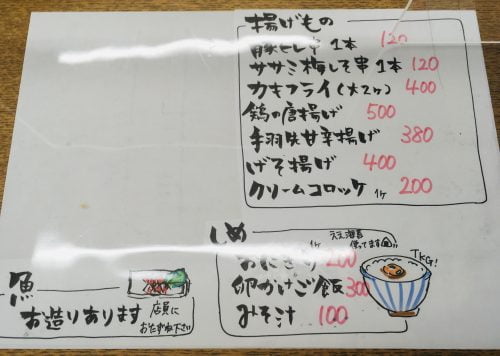 揚げもの
豚ヒレ串 1本 120
ササミ梅しそ串 1本 120
カキフライ(大2ヶ) 400
鶏の唐揚げ 500
手羽先甘辛揚げ 380
げそ揚げ 400
クリームコロッケ 1ヶ 200
しめ
ええ海苔
使ってます
おにぎり 1ヶ 200
卵かけご飯 300
みそ汁 100
TKG!
魚
お造りあります
店員に
おたずね下さい